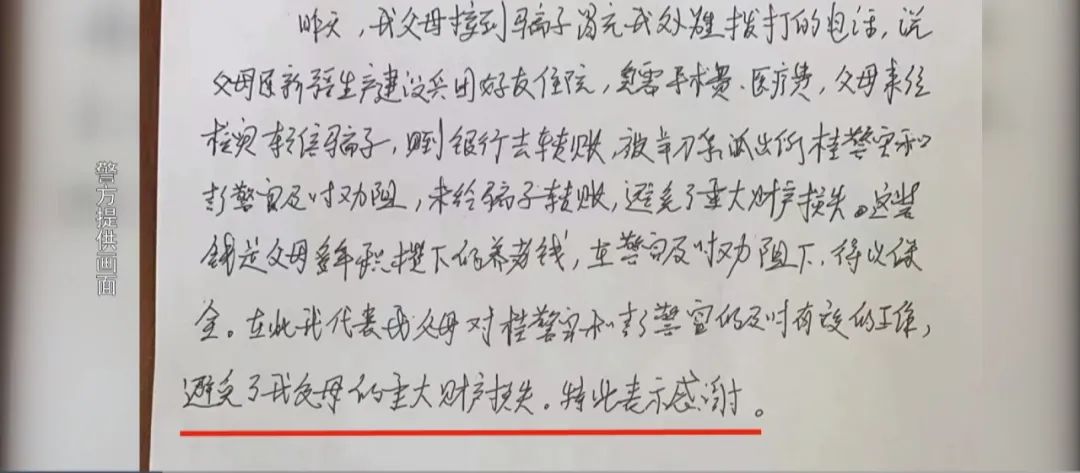 昨天，我父母接到骗子冒充我处难拨打的电话，说
父母因新疆生产建设兵团好友住院，急需手术费、医疗费，父母未经
核实轻信骗子，到银行去转账，被派出所桂警官和
彭警官及时劝阻，未给骗子转账，避免了重大财产损失。这些
钱是父母多年积攒下的养老钱，在警官及时劝阻下，得以保
全。在此我代表我父母对桂警官和彭警官的及时有效的工作，
避免了我父母的重大财产损失。特此表示感谢。
警方提供画面